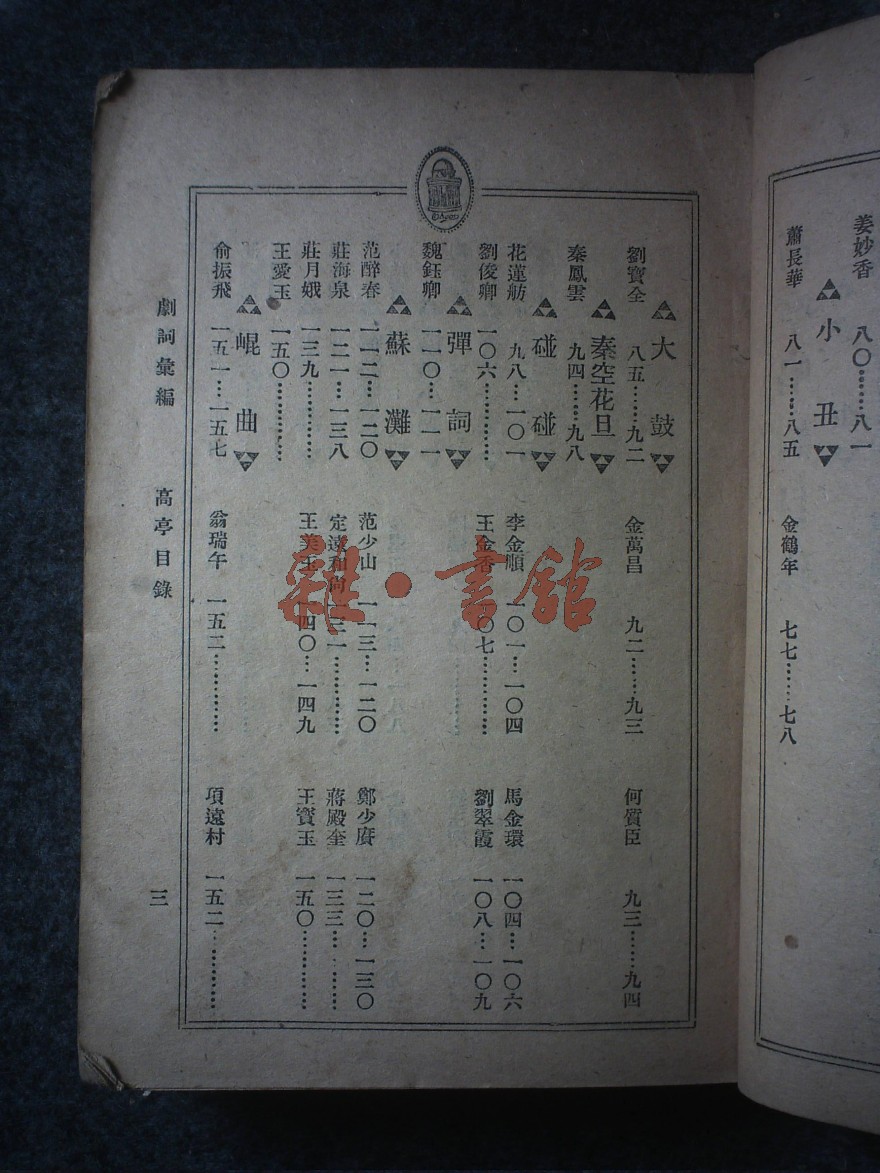 姜妙香 八〇……八一
小丑
蕭長華 八一……八五
金鶴年 七七……七八
大鼓
劉寶全 八五……九二
金萬昌 九二……九三
何質臣 九三……九四
秦空花旦
秦鳳雲 九四……九八
碰碰
花蓮舫 九八…一〇一
李金順 一〇一…一〇四
馬金環 一〇四…一〇六
劉俊卿 一〇六…………
王金香 一〇七…………
劉翠霞 一〇八…一〇九
彈詞
魏鈺卿 一一〇…一一一
蘇灘
范醉春 一一二…一二〇
范少山 一一三…一二〇
鄭少賡 一二〇…一三〇
莊海泉 一二一…一三八
定遠和尚 一三一…………
蔣殿奎 一三三…………
莊月娥 一三九…………
王美玉 一四〇…一四九
王寶玉 一五〇…………
王愛玉 一五〇…………
崐曲
俞振飛 一五一…一五七
翁瑞午 一五二…………
項遠村 一五二…………
劇詞彙編 高亭目錄 三
雜·書館